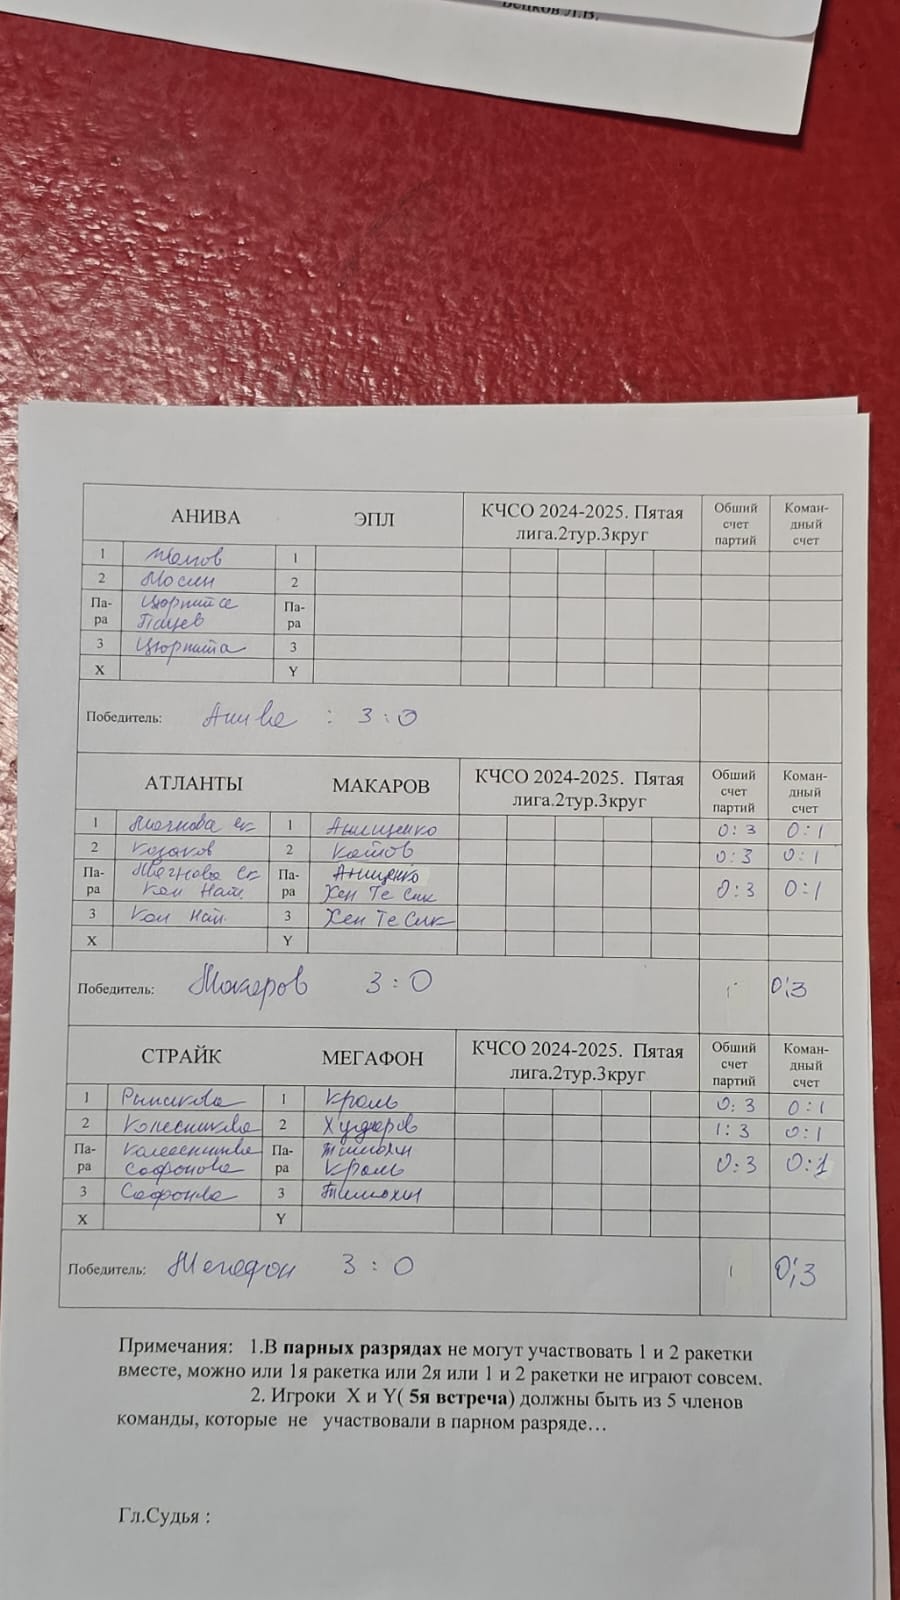 Бецков Л.В.
АНИВА ЭПЛ КЧСО 2024-2025. Пятая лига.2тур.3круг Общий счет партий Коман-дный счет
1 1
2 Мосин 2
Па-ра Па-ра
3 Цюрпита 3
X Y
Победитель: Анива : 3:0
АТЛАНТЫ МАКАРОВ КЧСО 2024-2025. Пятая лига.2тур.3круг Общий счет партий Коман-дный счет
1 Мягкова Ек 1 Анищенко 0:3 0:1
2 Казаков 2 Котов 0:3 0:1
Па-ра Мягкова Ек Па-ра Анищенко 0:3 0:1
Кан Нат. Хен Те Сик
3 Кан Нат. 3 Хен Те Сик
X Y
Победитель: Макаров 3:0 0:3
СТРАЙК МЕГАФОН КЧСО 2024-2025. Пятая лига.2тур.3круг Общий счет партий Коман-дный счет
1 1 Кроль 0:3 0:1
2 Колесникова 2 1:3 0:1
Па-ра Колесникова Па-ра Тимохин 0:3 0:1
Сафонова Кроль
3 Сафонова 3 Тимохин
X Y
Победитель: Мегафон 3:0 0:3
Примечания: 1.В парных разрядах не могут участвовать 1 и 2 ракетки
вместе, можно или 1я ракетка или 2я или 1 и 2 ракетки не играют совсем.
2. Игроки X и Y( 5я встреча) должны быть из 5 членов
команды, которые не участвовали в парном разряде…
Гл.Судья :